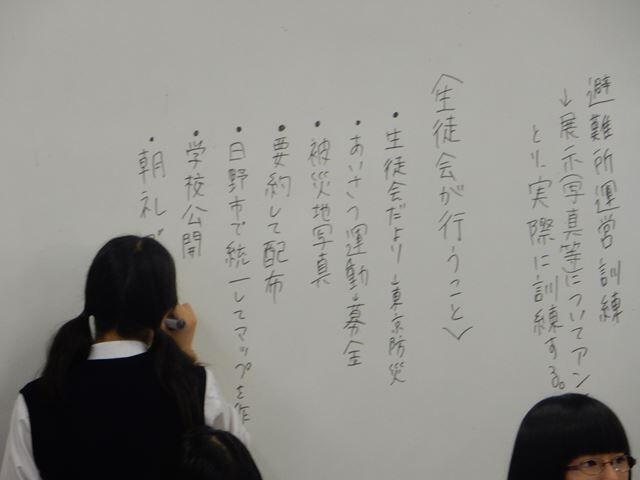 避難所運営訓練
↓展示(写真等)についてアン
とり、実際に訓練する。
〈生徒会が行うこと〉
・生徒会だより→東京防災
・あいさつ運動→募金
・被災地写真
・要約して配布
・日野市で統一してマップを作
・学校公開
・朝礼